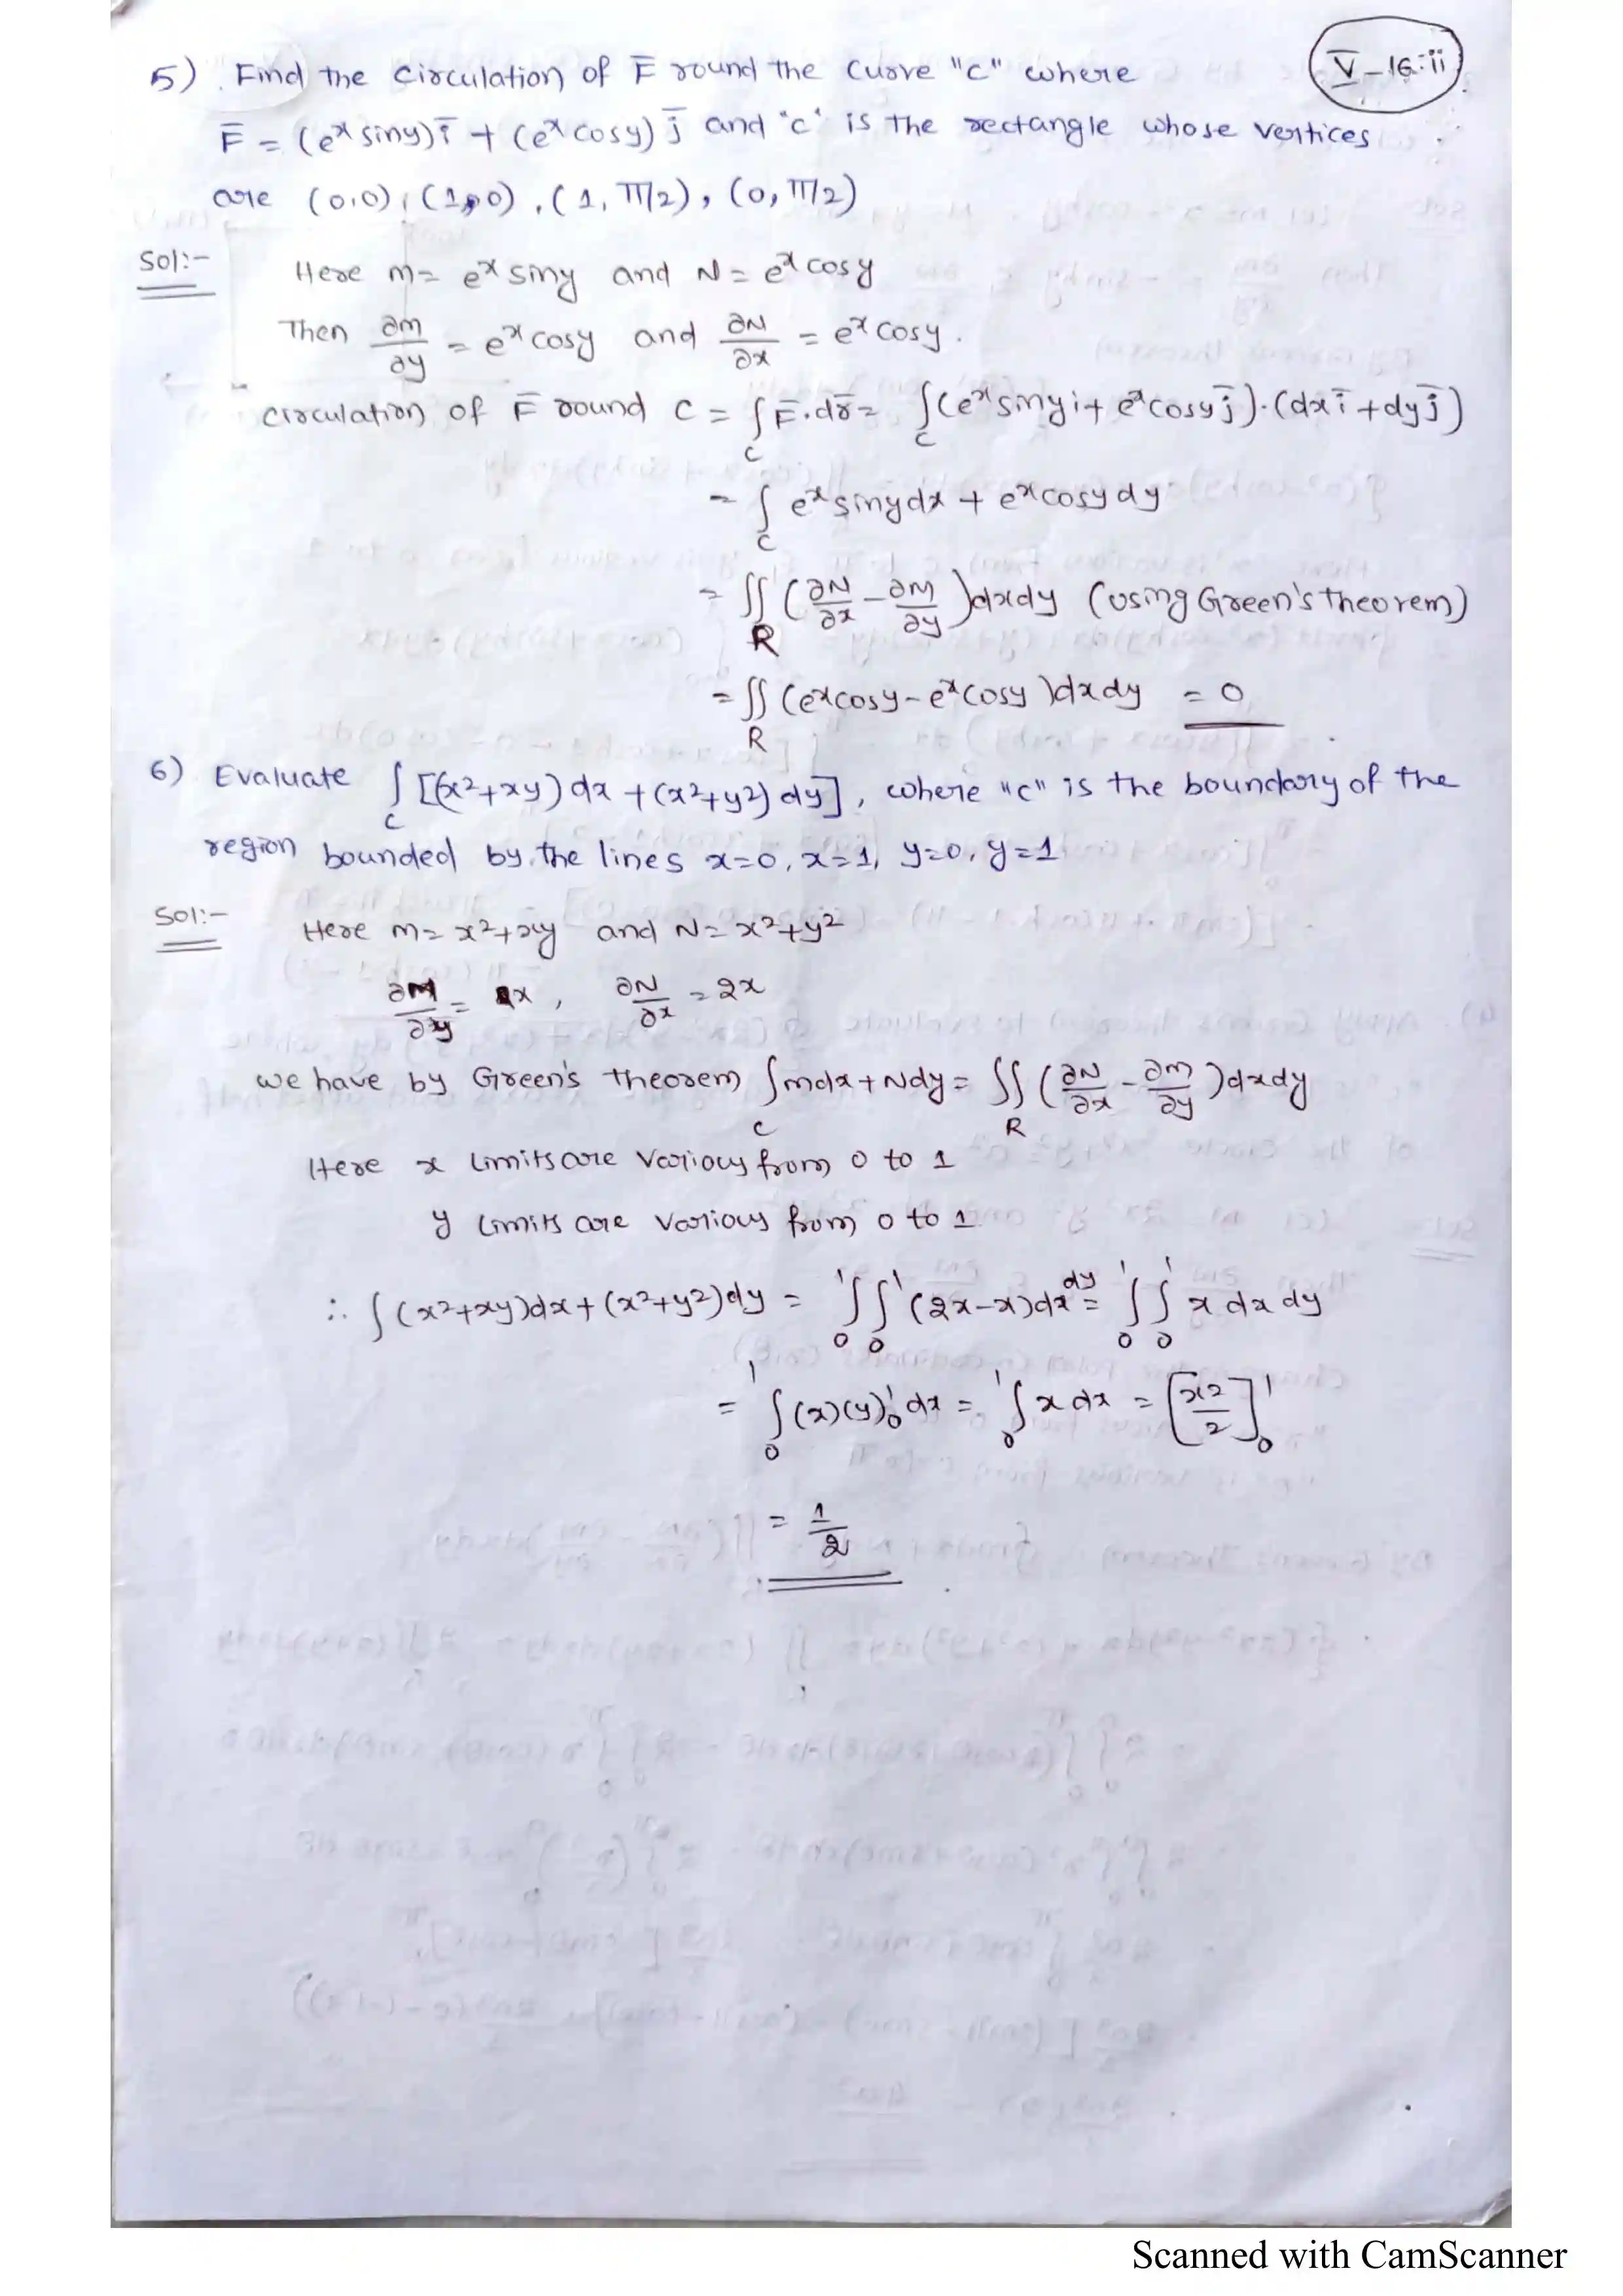 V-16-ii
5) Find the Circulation of F̄ round the curve "c" where
F̄ = (eˣ siny)ī + (eˣ cosy) j̄ and "c" is the rectangle whose vertices
are (0,0), (1,0), (1, π/2), (0, π/2)
Sol:-
Here M = eˣ siny and N = eˣ cosy
Then ∂M/∂y = eˣ cosy and ∂N/∂x = eˣ cosy.
circulation of F̄ round C = ∫_C F̄.dr̄ = ∫_C (eˣ siny i + eˣ cosy j̄).(dx ī + dy j̄)
= ∫_C eˣ siny dx + eˣ cosy dy
= ∬_R (∂N/∂x - ∂M/∂y) dxdy (using Green's theorem)
= ∬_R (eˣ cosy - eˣ cosy) dxdy = 0
6) Evaluate ∫_C [(x²+xy) dx + (x²+y²) dy], where "c" is the boundary of the
region bounded by the lines x=0, x=1, y=0, y=1
Sol:-
Here M = x²+xy and N = x²+y²
∂M/∂y = x, ∂N/∂x = 2x
we have by Green's theorem ∫_C Mdx + Ndy = ∬_R (∂N/∂x - ∂M/∂y) dxdy
Here x limits are various from 0 to 1
y limits are various from 0 to 1
∴ ∫ (x²+xy)dx + (x²+y²)dy = ∫₀¹ ∫₀¹ (2x-x)dx dy = ∫₀¹ ∫₀¹ x dx dy
= ∫₀¹ (x)(y)₀¹ dx = ∫₀¹ x dx = [x²/2]₀¹
= 1/2
Scanned with CamScanner